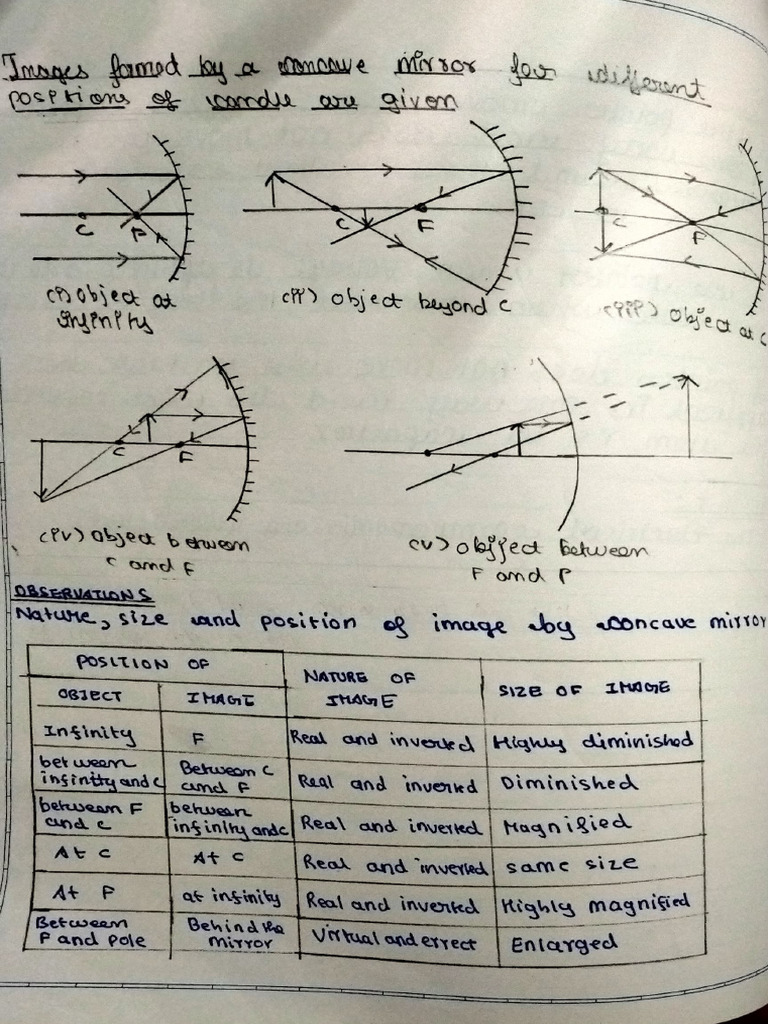 Images formed by a concave mirror for different
positions of candle are given
C F
C F
C F
(i) object at
infinity
(ii) object beyond C
(iii) object at C
C F
(iv) object between
C and F
(v) objject between
F and P
OBSERVATIONS
Nature, size and position of image by concave mirror
POSITION OF
OBJECT IMAGE NATURE OF IMAGE SIZE OF IMAGE
Infinity F Real and inverted Highly diminished
between infinity and C Between C and F Real and inverted Diminished
between F and C between infinity and C Real and inverted Magnified
At C At C Real and inverted same size
At F at infinity Real and inverted Highly magnified
Between F and pole Behind the mirror Virtual and errect Enlarged